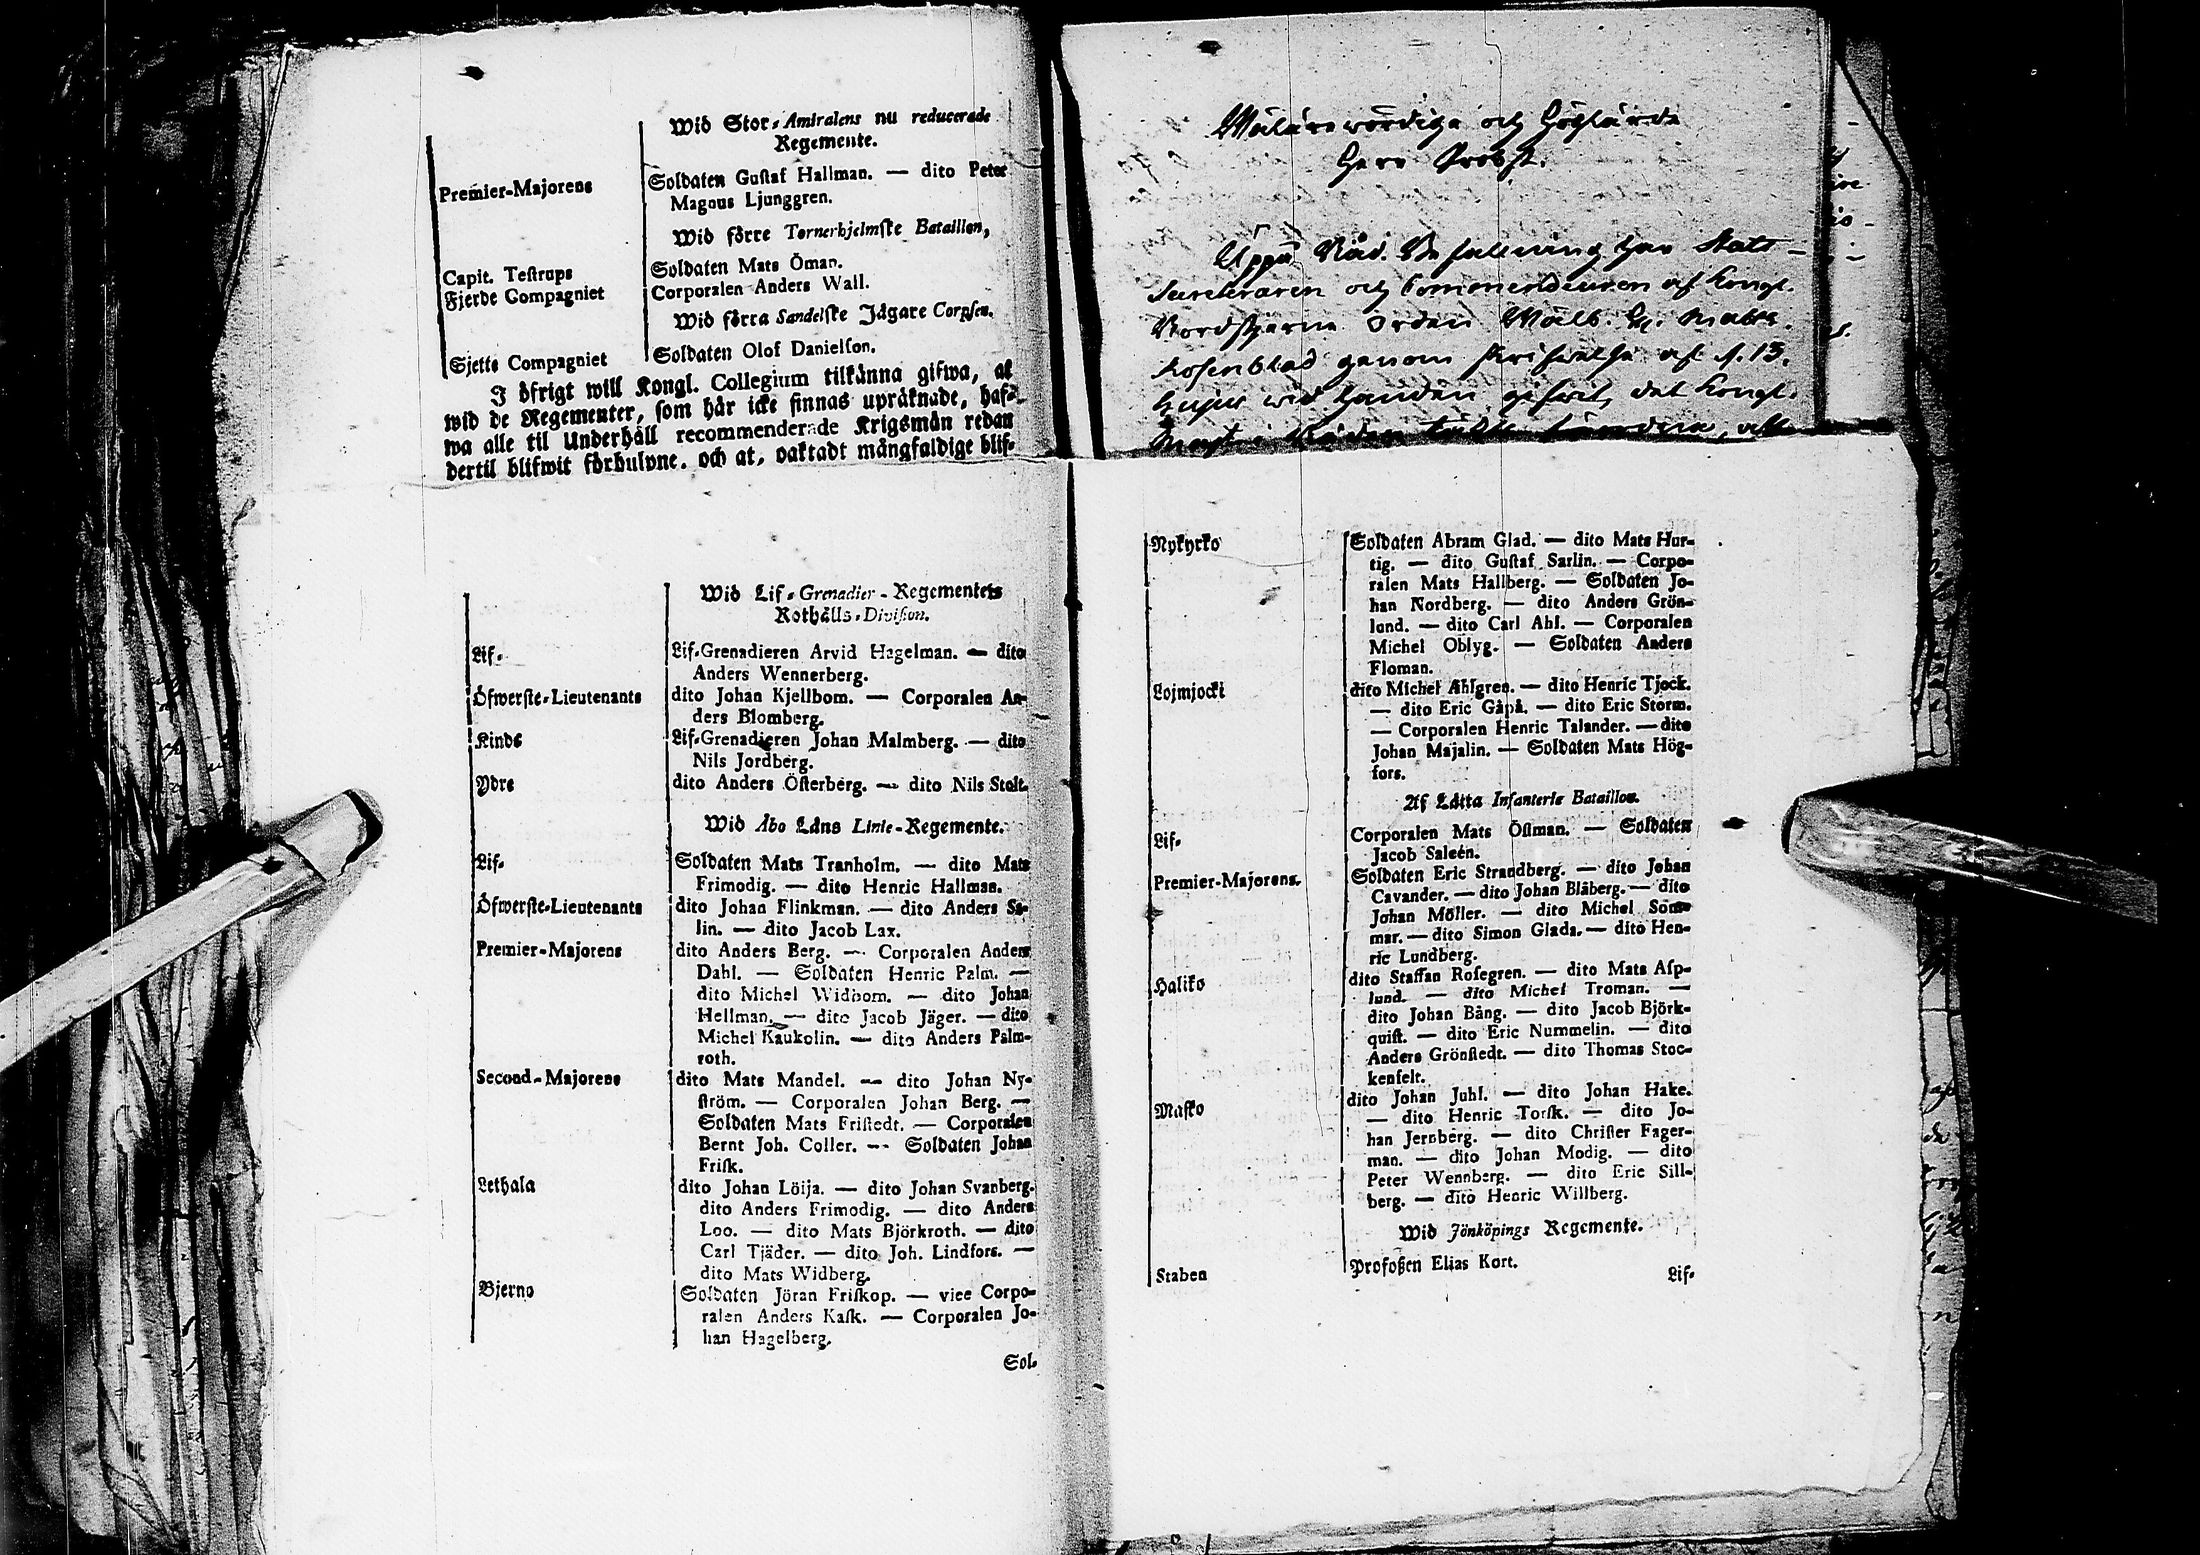 Wid Stor-Amiralens nu reducerade
Regemente.
Premier-Majorens
Soldaten Gustaf Hallman. — dito Peter
Magnus Ljunggren.
Wid förre Tornerhjelmske Bataillon,
Capit. Testrups
Soldaten Mats Öman.
Fjerde Compagniet
Corporalen Anders Wall.
Wid förra Sandelske Jägare Corpsen.
Sjette Compagniet
Soldaten Olof Danielson.
I öfrigt will Kongl. Collegium tilkänna gifwa, at
wid de Regementer, som här icke finnas upräknade, haf-
wa alle til Underhåll recommenderade Krigsmän redan
dertil blifwit förhulpne, och at, oaktadt mångfaldige blif-
Wid Lif-Grenadier-Regementets
Rothålls-Division.
Lif-
Lif-Grenadieren Arvid Hagelman. — dito
Anders Wennerberg.
Öfwerste-Lieutenants
dito Johan Kjellbom. — Corporalen An-
ders Blomberg.
Kinds
Lif-Grenadieren Johan Malmberg. — dito
Nils Jordberg.
Ydre
dito Anders Österberg. — dito Nils Stolt.
Wid Åbo Läns Linie-Regemente.
Lif-
Soldaten Mats Tranholm. — dito Mats
Frimodig. — dito Henric Hallman.
Öfwerste-Lieutenants
dito Johan Flinkman. — dito Anders Sa-
lin. — dito Jacob Lax.
Premier-Majorens
dito Anders Berg. — Corporalen Anders
Dahl. — Soldaten Henric Palm. —
dito Michel Widbom. — dito Johan
Hellman. — dito Jacob Jäger. — dito
Michel Kaukolin. — dito Anders Palm-
roth.
Second-Majorens
dito Mats Mandel. — dito Johan Ny-
ström. — Corporalen Johan Berg. —
Soldaten Mats Fristedt. — Corporalen
Bernt Joh. Coller. — Soldaten Johan
Frisk.
Lethala
dito Johan Löija. — dito Johan Svanberg.
dito Anders Frimodig. — dito Anders
Loo. — dito Mats Björkroth. — dito
Carl Tjäder. — dito Joh. Lindfors. —
dito Mats Widberg.
Bjerno
Soldaten Jöran Friskop. — vice Corpo-
ralen Anders Kask. — Corporalen Jo-
han Hagelberg.
Sol-
Wälärewördige och Höglärde
Herr Probst.
Uppå Nåd. Befallning har Stats-
Secreteraren och Commendeuren af Kongl.
Nordstjerne Orden Wälb. Hr.
Rosenblad genom skrifwelse af d. 13.
hujus wid handen gifwit, det Kongl.
Nykyrko
Soldaten Abram Glad. — dito Mats Hur-
tig. — dito Gustaf Sarlin. — Corpo-
ralen Mats Hallberg. — Soldaten Jo-
han Nordberg. — dito Anders Grön-
lund. — dito Carl Ahl. — Corporalen
Michel Oblyg. — Soldaten Anders
Floman.
Lojmjocki
dito Michel Ahlgren. — dito Henric Tjock.
— dito Eric Gåpå. — dito Eric Storm.
— Corporalen Henric Talander. — dito
Johan Majalin. — Soldaten Mats Hög-
fors.
Af Lätta Infanterie Bataillon.
Lif-
Corporalen Mats Östman. — Soldaten
Jacob Saleén.
Premier-Majorens.
Soldaten Eric Strandberg. — dito Johan
Cavander. — dito Johan Blåberg. — dito
Johan Möller. — dito Michel Som-
mar. — dito Simon Glada. — dito Hen-
ric Lundberg.
Haliko
dito Staffan Rosegren. — dito Mats Asp-
lund. — dito Michel Troman. —
dito Johan Bång. — dito Jacob Björk-
quist. — dito Eric Nummelin. — dito
Anders Grönstedt. — dito Thomas Stoc-
kenfelt.
Masko
dito Johan Juhl. — dito Johan Hake.
— dito Henric Torsk. — dito Jo-
han Jernberg. — dito Christer Fager-
man. — dito Johan Modig. — dito
Peter Wennberg. — dito Eric Sill-
berg. — dito Henric Willberg.
Wid Jönköpings Regemente.
Staben
Profoßen Elias Kort.
Lif-